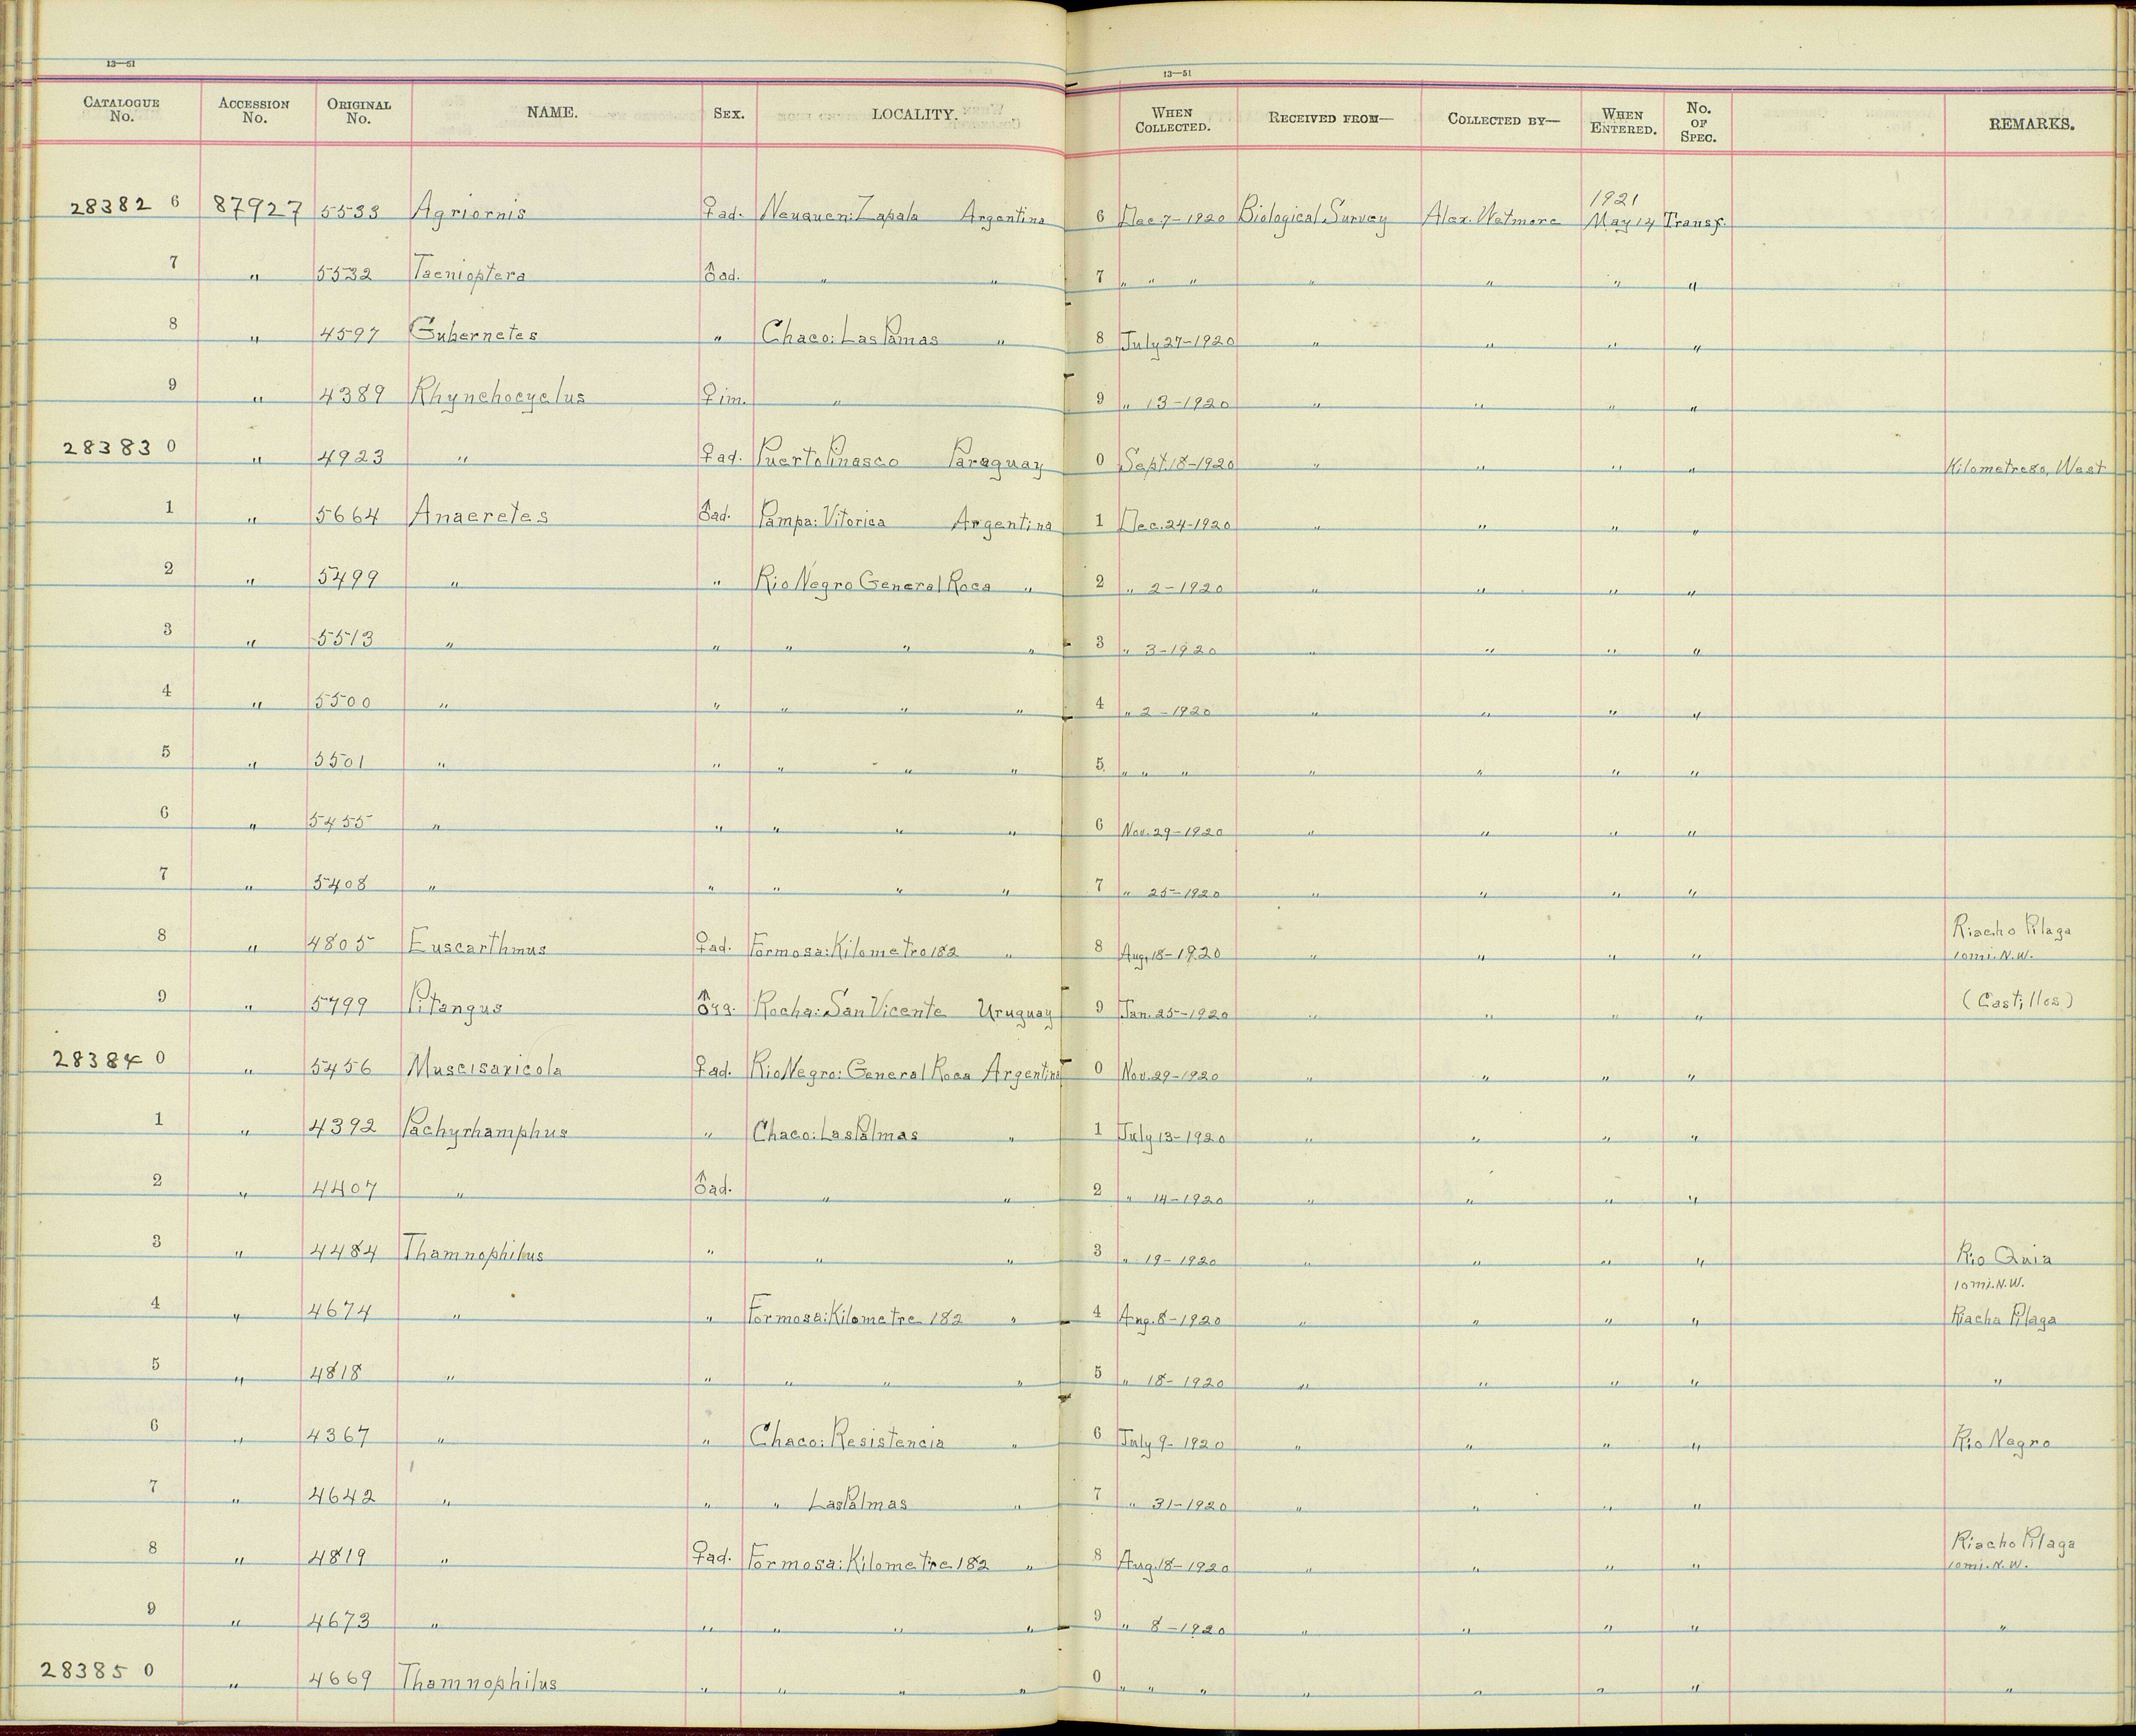 13—51
13—51
CATALOGUE No. ACCESSION No. ORIGINAL No. NAME. SEX. LOCALITY. WHEN COLLECTED. RECEIVED FROM— COLLECTED BY— WHEN ENTERED. No. OF SPEC. REMARKS.
28382 6 87927 5533 Agriornis ♀ ad. Neuquen: Zapala Argentina 6 Dec. 7-1920 Biological Survey Alex. Wetmore 1921 May 14 Transf.
7 " 5532 Taenioptera ♂ ad. " " 7 " " " " " " "
8 " 4597 Gubernetes " Chaco: Las Pamas " 8 July 27-1920 " " " "
9 " 4389 Rhynchocyclus ♀ im. " 9 " 13-1920 " " " "
28383 0 " 4923 " ♀ ad. Puerto Pinasco Paraguay 0 Sept. 18-1920 " " " " Kilometre 80, West
1 " 5664 Anaeretes ♂ ad. Pampa: Vitorica Argentina 1 Dec. 24-1920 " " " "
2 " 5499 " " Rio Negro General Roca " 2 " 2-1920 " " " "
3 " 5513 " " " " " 3 " 3-1920 " " " "
4 " 5500 " " " " " 4 " 2-1920 " " " "
5 " 5501 " " " " " 5 " " " " " " "
6 " 5455 " " " " " 6 Nov. 29-1920 " " " "
7 " 5408 " " " " " 7 " 25-1920 " " " "
8 " 4805 Euscarthmus ♀ ad. Formosa: Kilometro 182 " 8 Aug. 18-1920 " " " " Riacho Pilaga 10 mi. N.W.
9 " 5799 Pitangus ♂ yg. Rocha: San Vicente Uruguay 9 Jan. 25-1920 " " " " (Castillos)
28384 0 " 5456 Muscisaxicola ♀ ad. Rio Negro: General Roca Argentina 0 Nov. 29-1920 " " " "
1 " 4392 Pachyrhamphus " Chaco: Las Palmas " 1 July 13-1920 " " " "
2 " 4407 " ♂ ad. " " 2 " 14-1920 " " " "
3 " 4484 Thamnophilus " " " 3 " 19-1920 " " " " Rio Quia
4 " 4674 " " Formosa: Kilometre 182 " 4 Aug. 8-1920 " " " " 10 mi. N.W. Riacha Pilaga
5 " 4818 " " " " " 5 " 18-1920 " " " " "
6 " 4367 " " Chaco: Resistencia " 6 July 9-1920 " " " " Rio Negro
7 " 4642 " " " Las Palmas " 7 " 31-1920 " " " "
8 " 4819 " ♀ ad. Formosa: Kilometre 182 " 8 Aug. 18-1920 " " " " Riacho Pilaga 10 mi. N.W.
9 " 4673 " " " " " 9 " 8-1920 " " " " "
28385 0 " 4669 Thamnophilus " " " " 0 " " " " " " " "